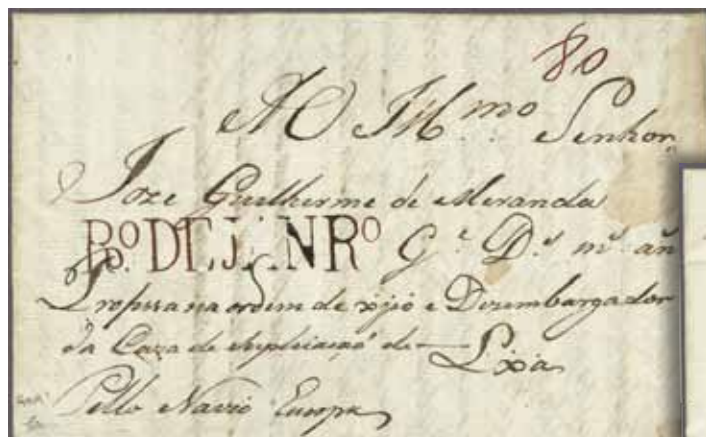 80
AO Ill.mo Senhor
Joze Guilherme de Meranda
Rº DE JANRº G.e D.s m.s an
Professa na ordem de xpõ e Dezembargador
da Caza de Suplicação de Lxa
Pello Navio Europa